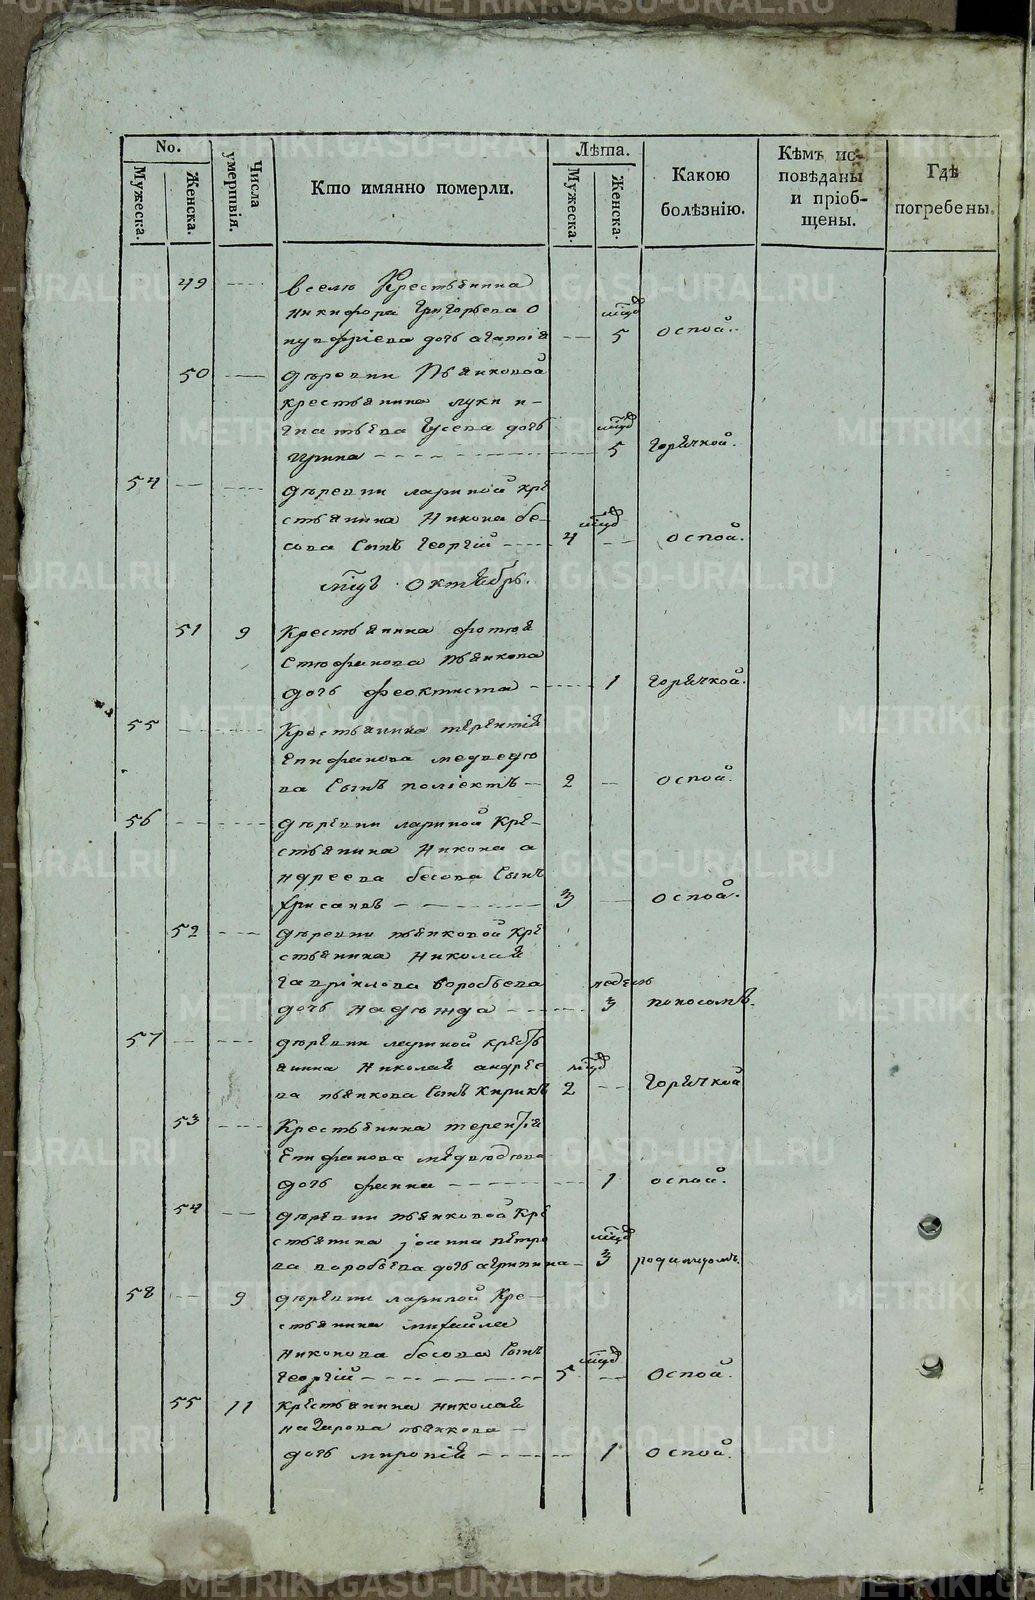 No.
Мужеска.
Женска.
Числа умертвія.
Кто имянно померли.
Лѣта.
Мужеска.
Женска.
Какою болѣзнію.
Кѣмъ исповѣданы и пріобщены.
Гдѣ погребены.
49 вселю Крестьянина
никифора Григорьева О
нуфріева дочь агапиія мцов 5 оспой.
50 деревни Пьянковой
крестьянина луки и-
гнатьева Гусева дочь
ирина мцов 5 горячкой.
54 деревни лариной кре
стьянина Никона бе-
сова сынъ Георгій 4 мцов оспой.
мцъ октябрь.
51 9 Крестьянина фотия
Стефанова пьянкова
дочь феоктиста 1 горячкой.
55 Крестьянина терентія
Епифанова медведе
ва сынъ поліектъ 2 оспой.
56 деревни лариной Кре-
стьянина Никона а
ндреева бесова сынъ
хрисанъ 3 оспой.
52 деревни пьянковой кре
стьянина Николая
гавріилова воробьева
дочь надежда недель 3 поносомъ.
57 деревни лариной кресть
янина Николая андрее
ва пьянкова сынъ Кирикъ 2 мцов горячкой
53 Крестьянина терентія
Епифанова медведева
дочь фаина 1 оспой.
54 деревни пьянковой кре
стьянина іоанна петро
ва воробьева дочь агрипина мцов 3 родимцомъ.
58 9 деревни лариной Кре-
стьянина михаила
никонова бесова сынъ
георгій 5 мцов оспой.
55 11 крестьянина николая
назарова пьянкова
дочь миропія 1 оспой.
METRIKI.GASO-URAL.RU